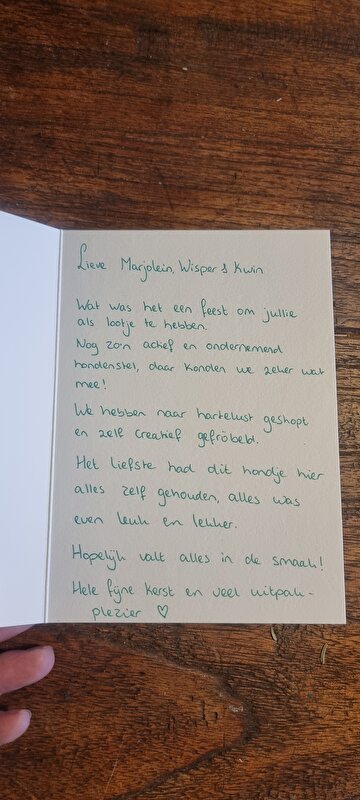 Lieve Marjolein, Wisper & Kwin
Wat was het een feest om jullie
als lootje te hebben.
Nog zo'n actief en ondernemend
hondenstel, daar konden we zeker wat
mee!
We hebben naar hartelust geshopt
en zelf creatief gefröbeld.
Het liefste had dit hondje hier
alles zelf gehouden, alles was
even leuk en lekker.
Hopelijk valt alles in de smaak!
Hele fijne kerst en veel uitpak-
plezier ♡